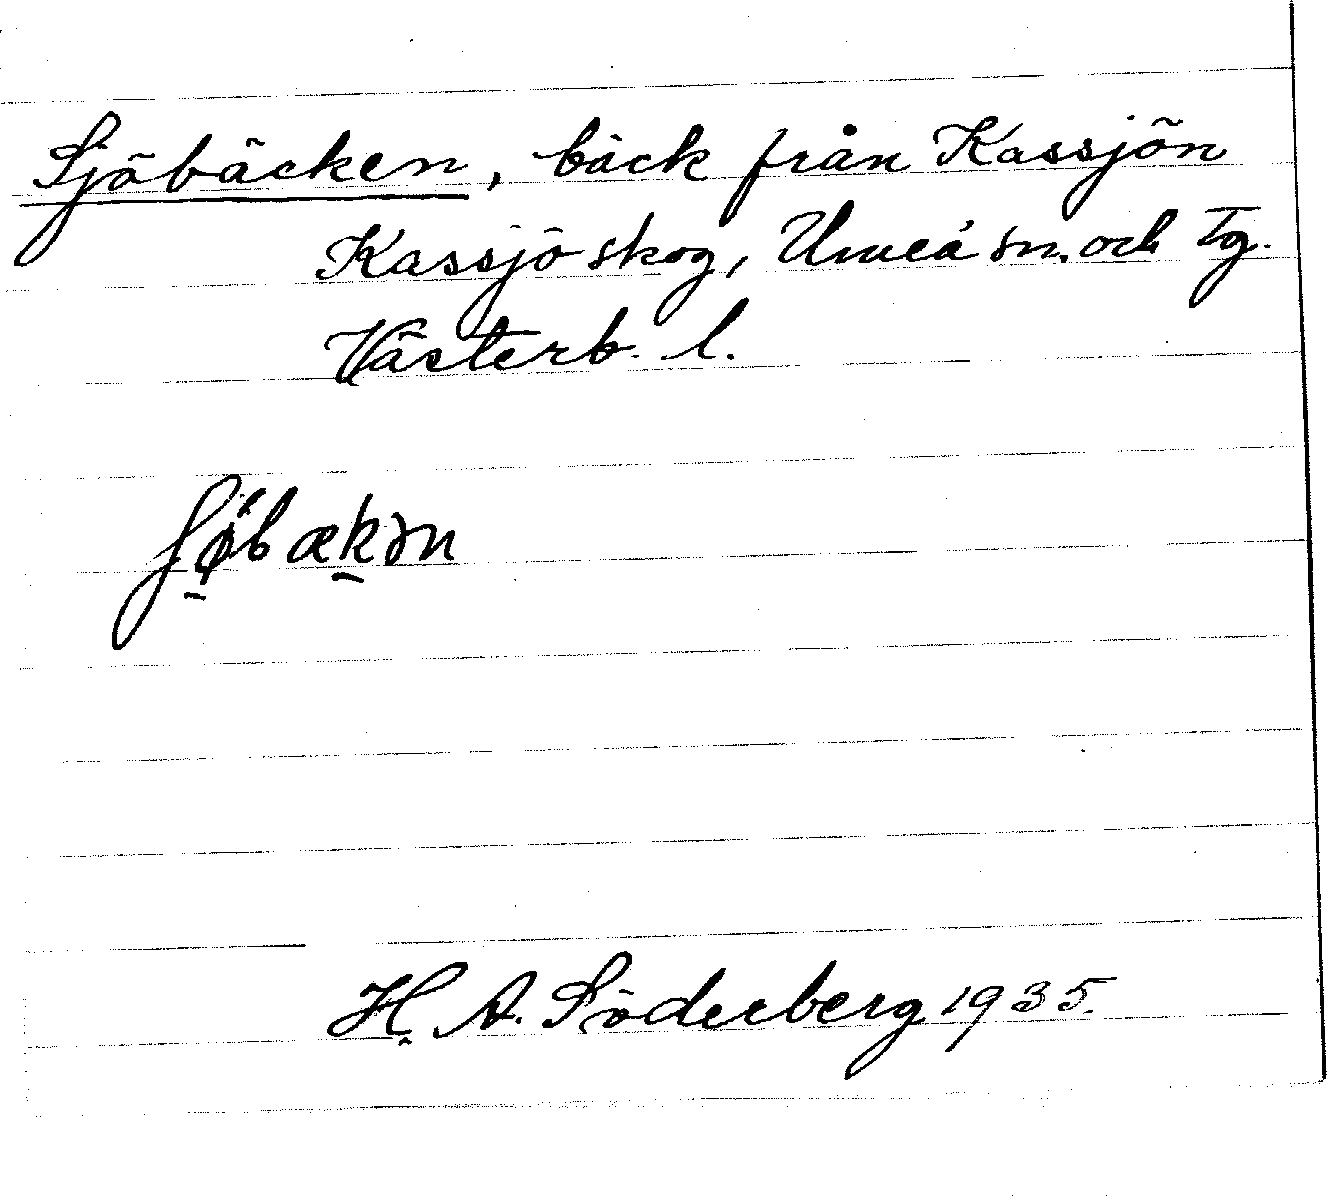 Sjöbäcken, bäck från Kassjön
Kassjö skog, Umeå sn. och Tg.
Västerb. l.
ʃø̀bækən
H. A. Söderberg 1935.